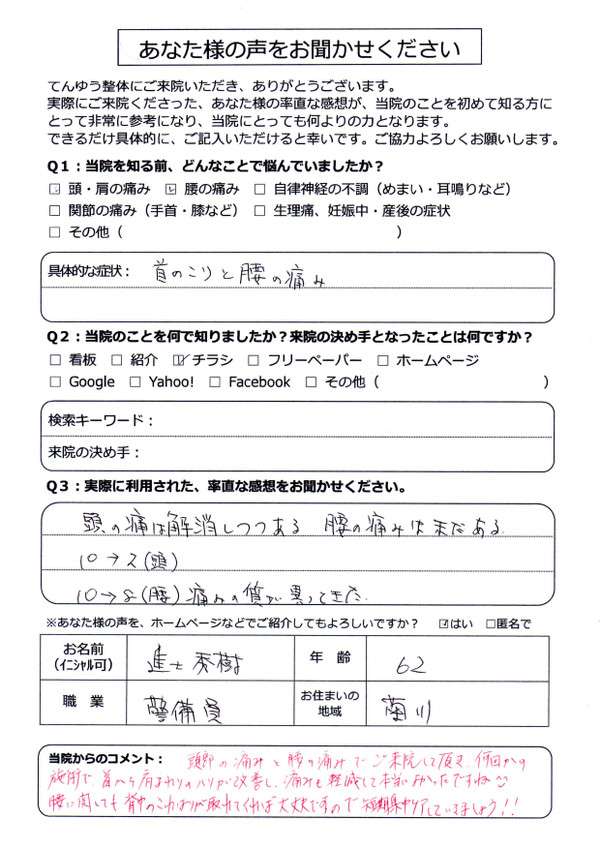 あなた様の声をお聞かせください
てんゆう整体にご来院いただき、ありがとうございます。
実際にご来院くださった、あなた様の率直な感想が、当院のことを初めて知る方に
とって非常に参考になり、当院にとっても何よりの力となります。
できるだけ具体的に、ご記入いただけると幸いです。ご協力よろしくお願いします。
Q1:当院を知る前、どんなことで悩んでいましたか?
☑ 頭・肩の痛み ☑ 腰の痛み □ 自律神経の不調(めまい・耳鳴りなど)
□ 関節の痛み(手首・膝など) □ 生理痛、妊娠中・産後の症状
□ その他( )
具体的な症状: 首のこりと腰の痛み
Q2:当院のことを何で知りましたか?来院の決め手となったことは何ですか?
□ 看板 □ 紹介 ☑ チラシ □ フリーペーパー □ ホームページ
□ Google □ Yahoo! □ Facebook □ その他( )
検索キーワード:
来院の決め手:
Q3:実際に利用された、率直な感想をお聞かせください。
頭の痛は解消しつつある 腰の痛みはまだある
10→2(頭)
10→8(腰)痛みの質が異ってきた.
※あなた様の声を、ホームページなどでご紹介してもよろしいですか? ☑はい □匿名で
お名前
(イニシャル可) 進士秀樹 年 齢 62
職 業 警備員 お住まいの
地域 菊川
当院からのコメント: 頭部の痛みと腰の痛みでご来院して頂き、何回かの
施術で首から肩まわりのハリが改善し、痛みも軽減して本当によかったですね☺
腰に関しても背中のこわばりが取れてくれば大丈夫ですので短期集中ケアしていきましょう!!